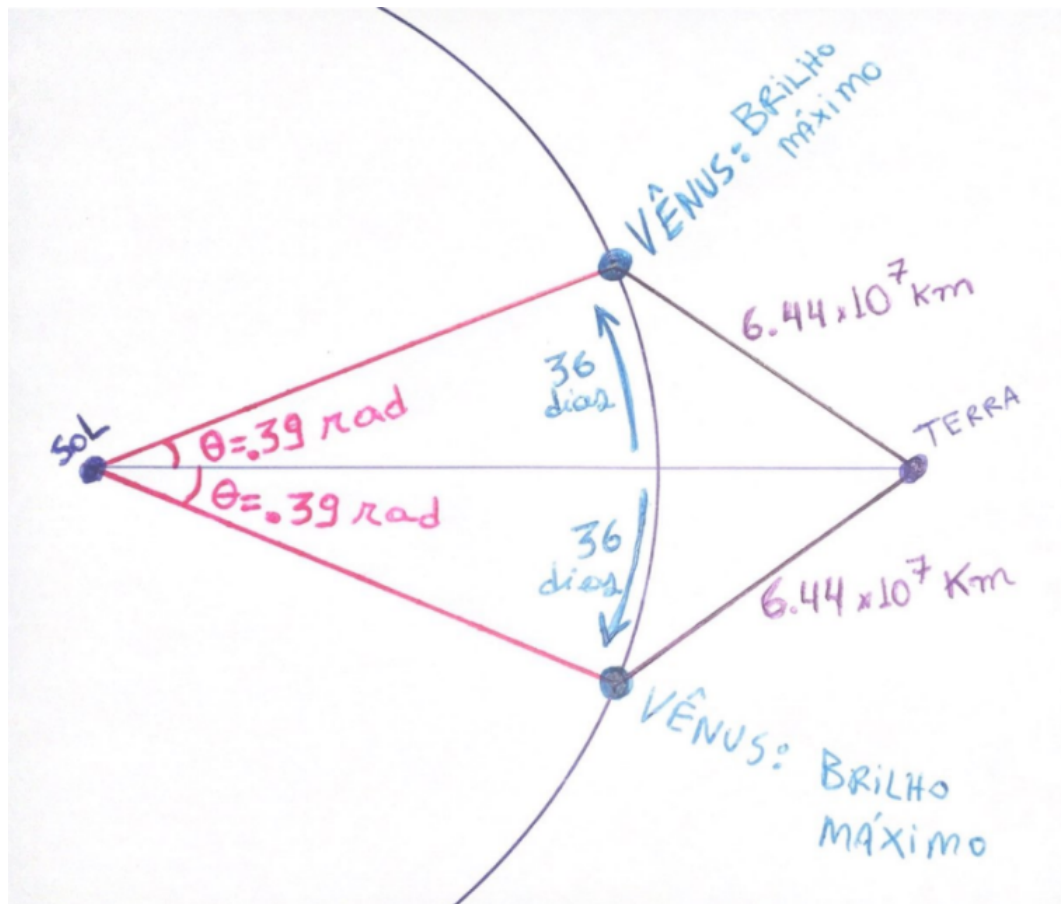 VÊNUS: BRILHO
MÁXIMO
6.44 x 10⁷ Km
36
dias
TERRA
SOL
θ=.39 rad
θ=.39 rad
36
dias
6.44 x 10⁷ Km
VÊNUS: BRILHO
MÁXIMO